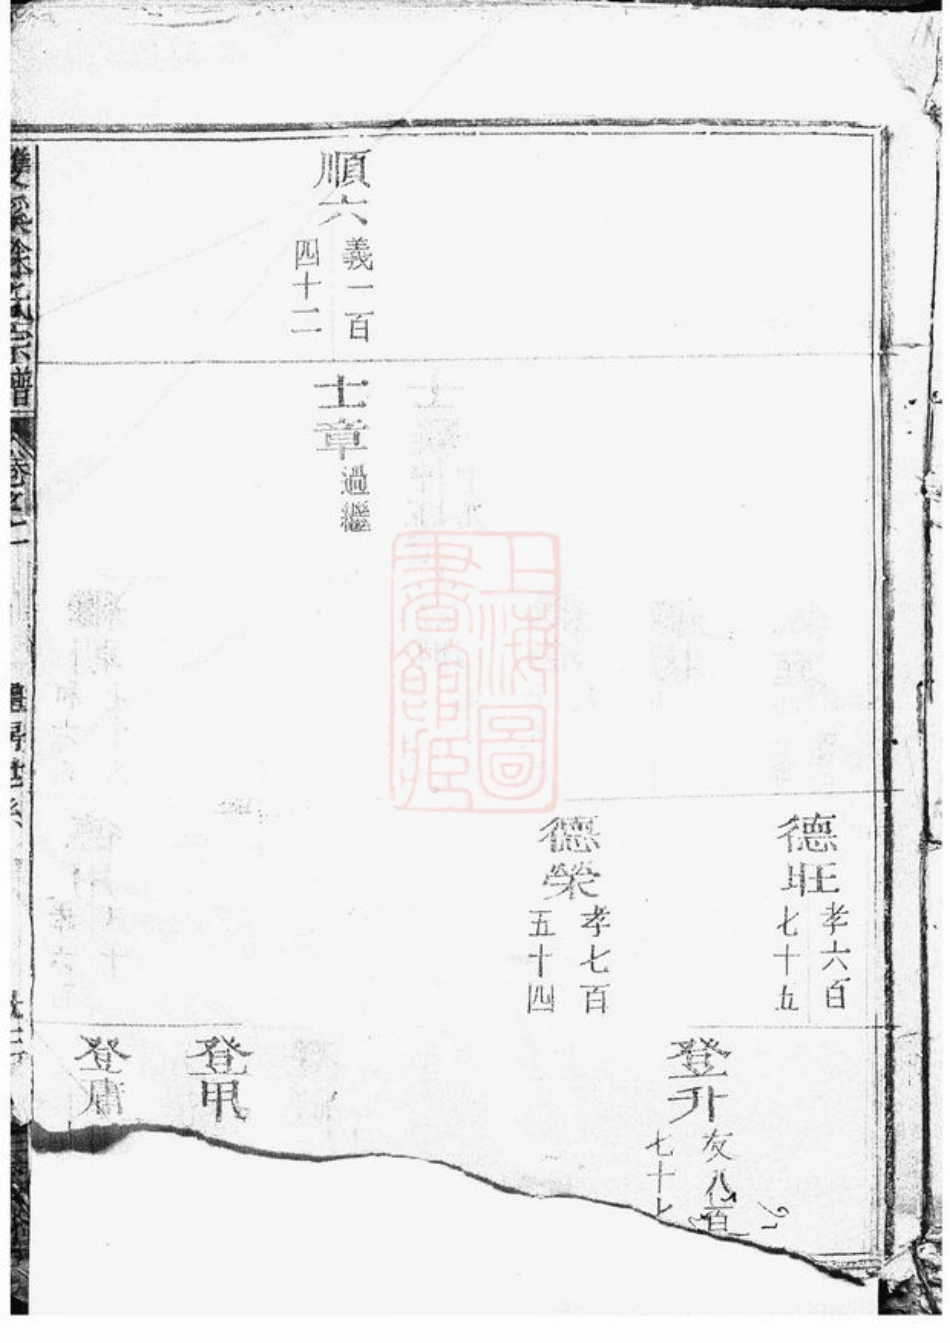 德旺
孝六百
七十五
登升
友八百
七十
德榮
孝七百
五十四
順六
義一百
四十二
士章
過繼
登甲
登庸
雙溪徐氏宗譜
卷之一
世系
上海圖
書館藏